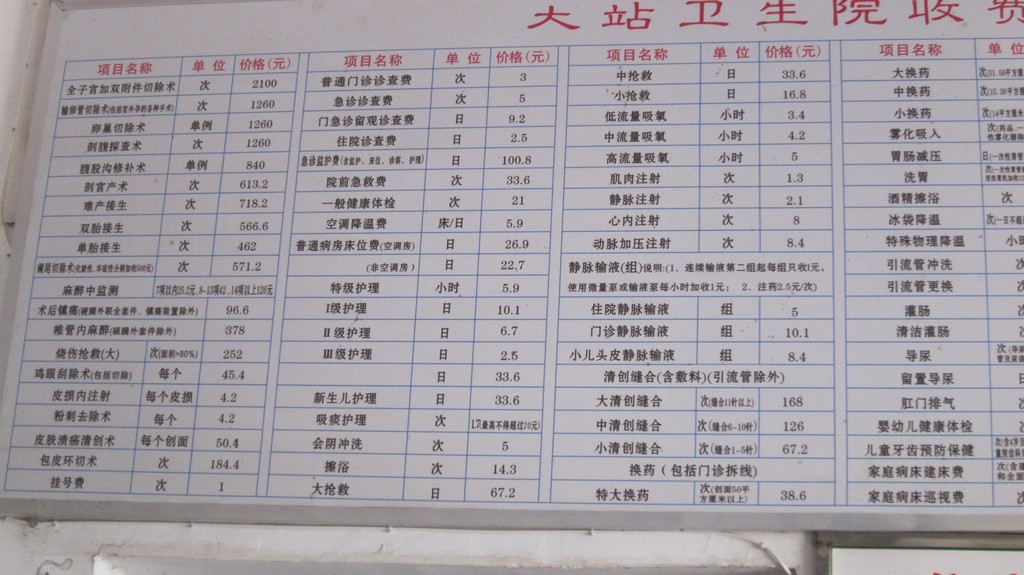 大站卫生院收费
项目名称 单位 价格(元)
全子宫加双附件切除术 次 2100
输卵管切除术(包括宫外孕的各种手术) 次 1260
卵巢切除术 单例 1260
剖腹探查术 次 1260
腹股沟修补术 单例 840
剖宫产术 次 613.2
难产接生 次 718.2
双胎接生 次 566.6
单胎接生 次 462
阑尾切除术(化脓性、坏疽性分别加收500元) 次 571.2
麻醉中监测 7项以内25.2元,8-13项42,14项以上126元
术后镇痛(硬膜外联全套件、镇痛装置除外) 96.6
椎管内麻醉(硬膜外套件除外) 378
烧伤抢救(大) 次(面积>80%) 252
鸡眼刮除术(包括切除) 每个 45.4
皮损内注射 每个皮损 4.2
粉刺去除术 每个 4.2
皮肤溃疡清创术 每个创面 50.4
包皮环切术 次 184.4
挂号费 次 1
项目名称 单位 价格(元)
普通门诊诊查费 次 3
急诊诊查费 次 5
门急诊留观诊查费 日 9.2
住院诊查费 日 2.5
急诊监护费(含监护、床位、诊察、护理) 日 100.8
院前急救费 次 33.6
一般健康体检 次 21
空调降温费 床/日 5.9
普通病房床位费(空调房) 日 26.9
(非空调房) 日 22,7
特级护理 小时 5.9
I级护理 日 10.1
II级护理 日 6.7
III级护理 日 2.5
日 33.6
新生儿护理 日 33.6
吸痰护理 次 1.7(最高不得超过20元)
会阴冲洗 次 5
擦浴 次 14.3
大抢救 日 67.2
项目名称 单位 价格(元)
中抢救 日 33.6
小抢救 日 16.8
低流量吸氧 小时 3.4
中流量吸氧 小时 4.2
高流量吸氧 小时 5
肌肉注射 次 1.3
静脉注射 次 2.1
心内注射 次 8
动脉加压注射 次 8.4
静脉输液(组)说明:(1、连续输液第二组起每组只收1元,
使用微量泵或输液泵每小时加收1元; 2、注药2.5元/次)
住院静脉输液 组 5
门诊静脉输液 组 10.1
小儿头皮静脉输液 组 8.4
清创缝合(含敷料)(引流管除外)
大清创缝合 次(缝合11针以上) 168
中清创缝合 次(缝合6-10针) 126
小清创缝合 次(缝合1-5针) 67.2
换药(包括门诊拆线)
特大换药 次(创面50平方厘米以上) 38.6
项目名称 单位
大换药
中换药
小换药
雾化吸入
胃肠减压
洗胃
酒精擦浴 次
冰袋降温
特殊物理降温
引流管冲洗 次
引流管更换 次
灌肠 次
清洁灌肠 次
导尿
留置导尿 日
肛门排气 次
婴幼儿健康体检 次
儿童牙齿预防保健
家庭病床建床费
家庭病床巡视费 次